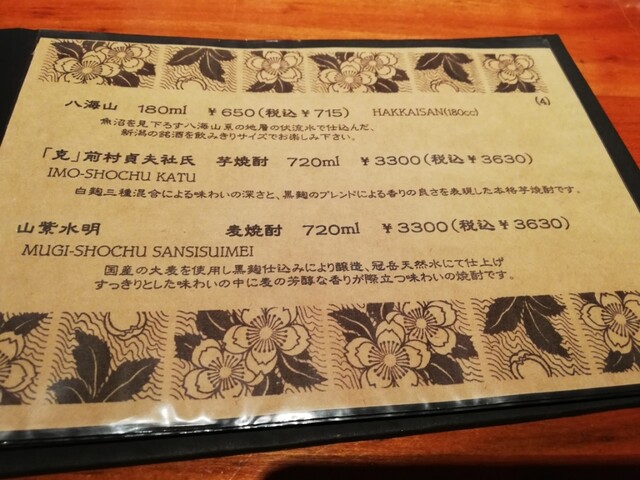 八海山 180ml ￥650(税込￥715) HAKKAISAN(180cc) (4)
魚沼を見下ろす八海山系の地層の伏流水で仕込んだ、
新潟の銘酒を飲みきりサイズでお楽しみ下さい。
「克」前村貞夫杜氏 芋焼酎 720ml ￥3300(税込￥3630)
IMO-SHOCHU KATU
白麹三種混合による味わいの深さと、黒麹のブレンドによる香りの良さを表現した本格芋焼酎です。
山紫水明 麦焼酎 720ml ￥3300(税込￥3630)
MUGI-SHOCHU SANSISUIMEI
国産の大麦を使用し黒麹仕込みにより醸造、冠岳天然水にて仕上げ
すっきりとした味わいの中に麦の芳醇な香りが際立つ味わいの焼酎です。